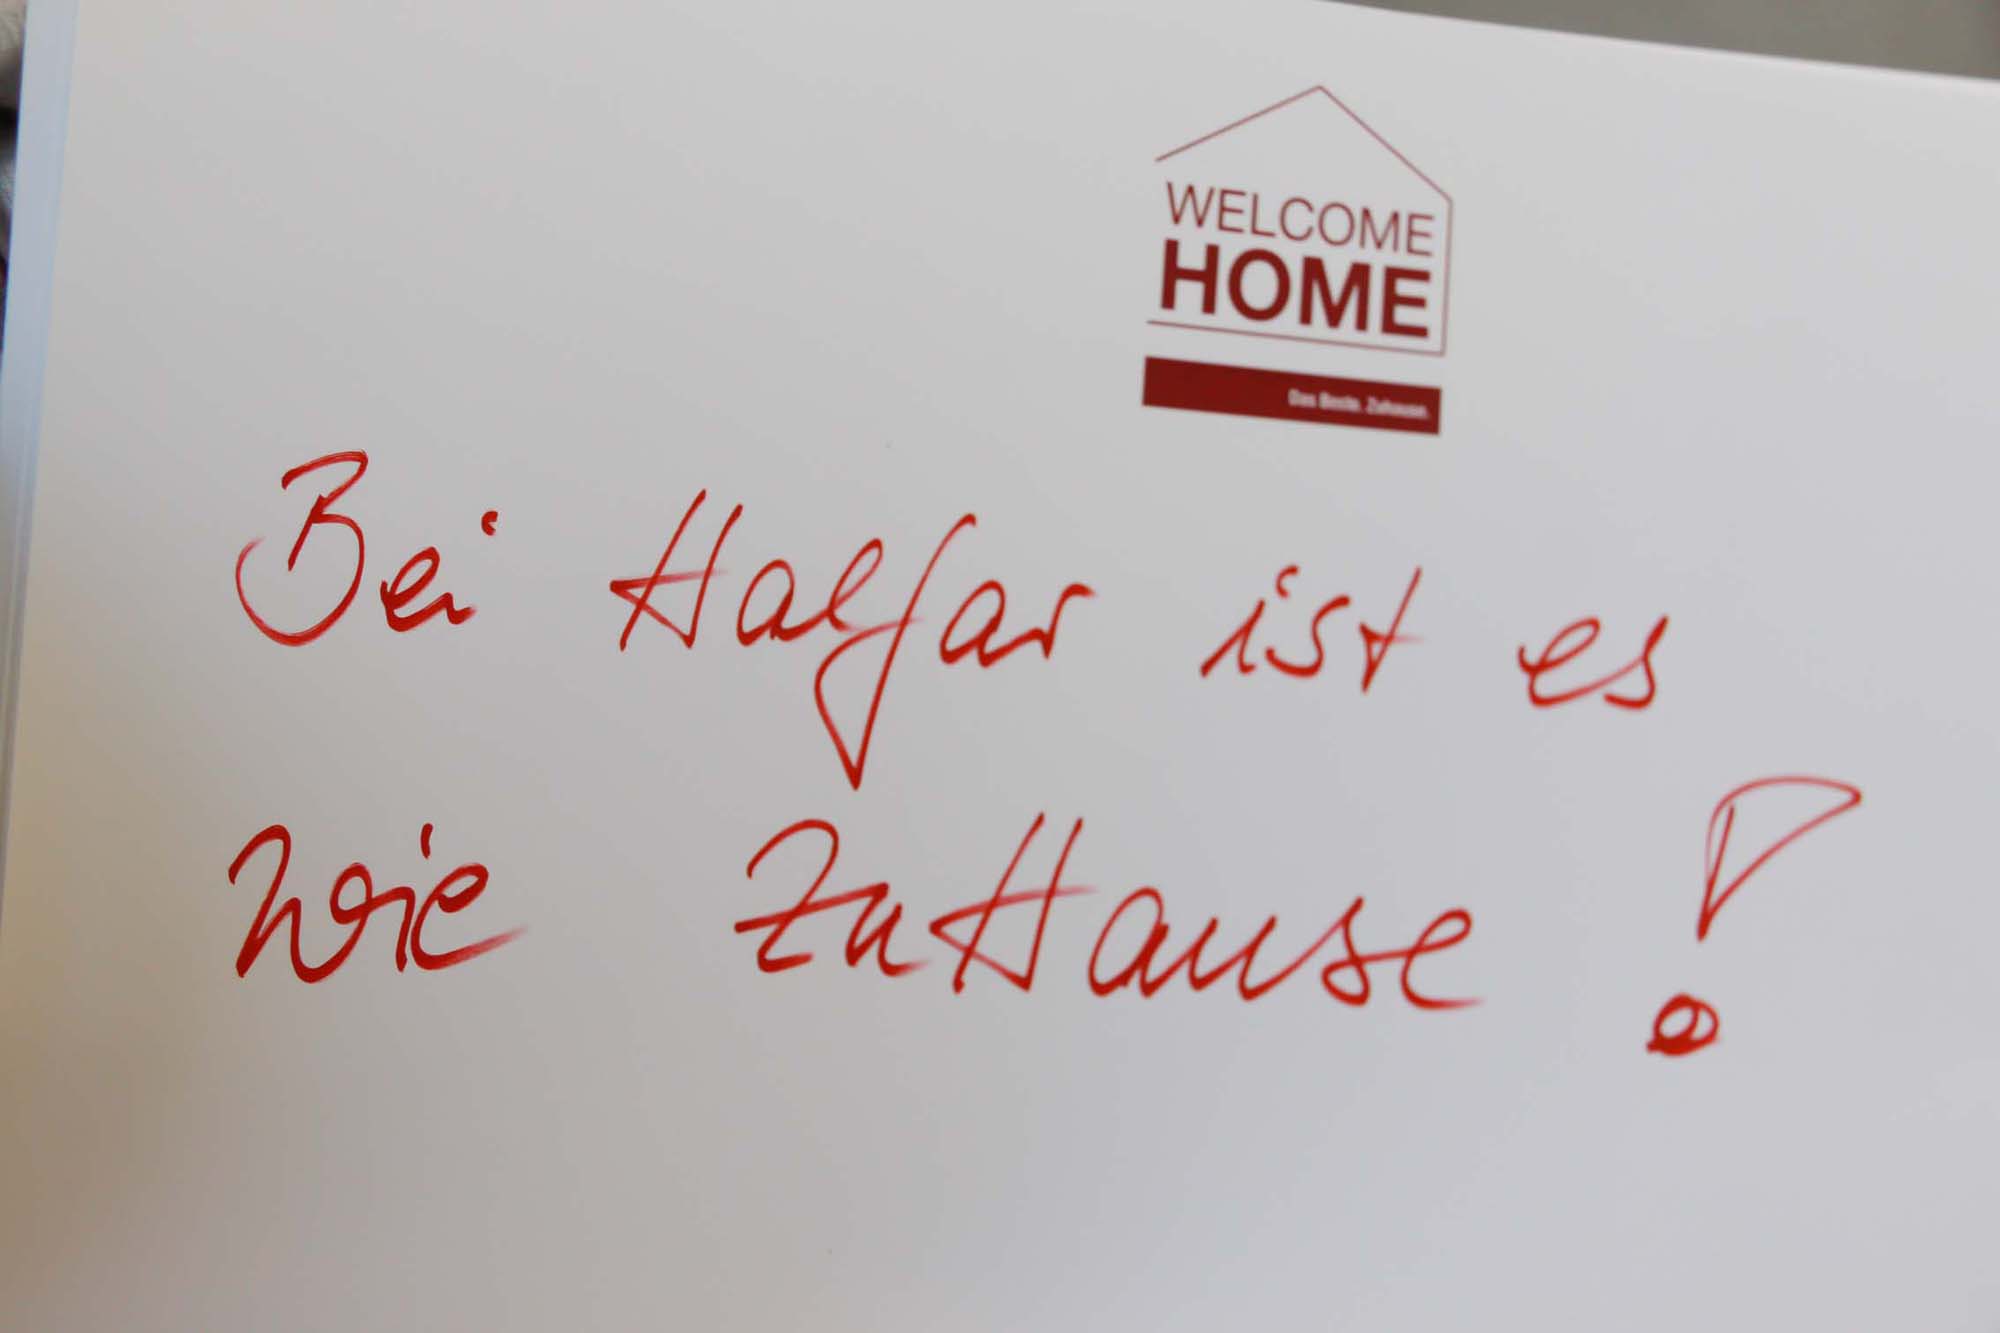 WELCOME
HOME
Das Beste. Zuhause.
Bei Halfar ist es
wie ZuHause!